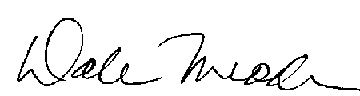 Dale Meade